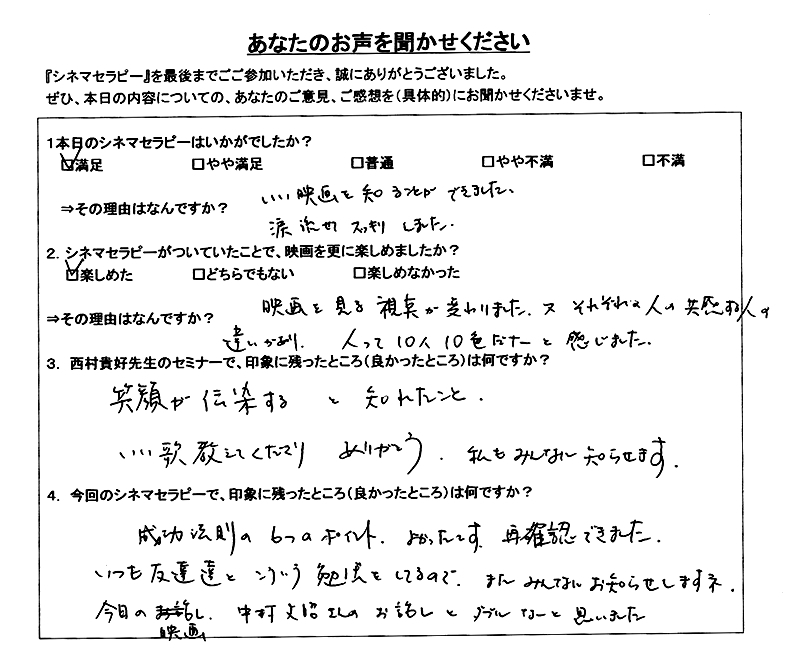 あなたのお声を聞かせください
『シネマセラピー』を最後までごご参加いただき、誠にありがとうございました。
ぜひ、本日の内容についての、あなたのご意見、ご感想を(具体的)にお聞かせくださいませ。
1本日のシネマセラピーはいかがでしたか?
☑満足 □やや満足 □普通 □やや不満 □不満
⇒その理由はなんですか? いい映画を知ることができました。
涙流せてスッキリしました。
2. シネマセラピーがついていたことで、映画を更に楽しめましたか?
☑楽しめた □どちらでもない □楽しめなかった
⇒その理由はなんですか? 映画を見る視点が変わりました。又それぞれの人の共感する人の
違いがあり、人って10人10色だナーと感じました。
3. 西村貴好先生のセミナーで、印象に残ったところ(良かったところ)は何ですか?
笑顔が伝染すると知れたこと。
いい歌教えてくださり ありがとう。私もみんなに知らせます。
4. 今回のシネマセラピーで、印象に残ったところ(良かったところ)は何ですか?
成功法則の6つのポイント。よかったです。再確認できました。
いつも友達達とこういう勉強をしてるので、またみんなにお知らせしますネ。
今日の映画、中村文昭さんのお話しとダブルなーと思いました